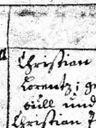 Christian
Lorentz; g
süll und
Christian J